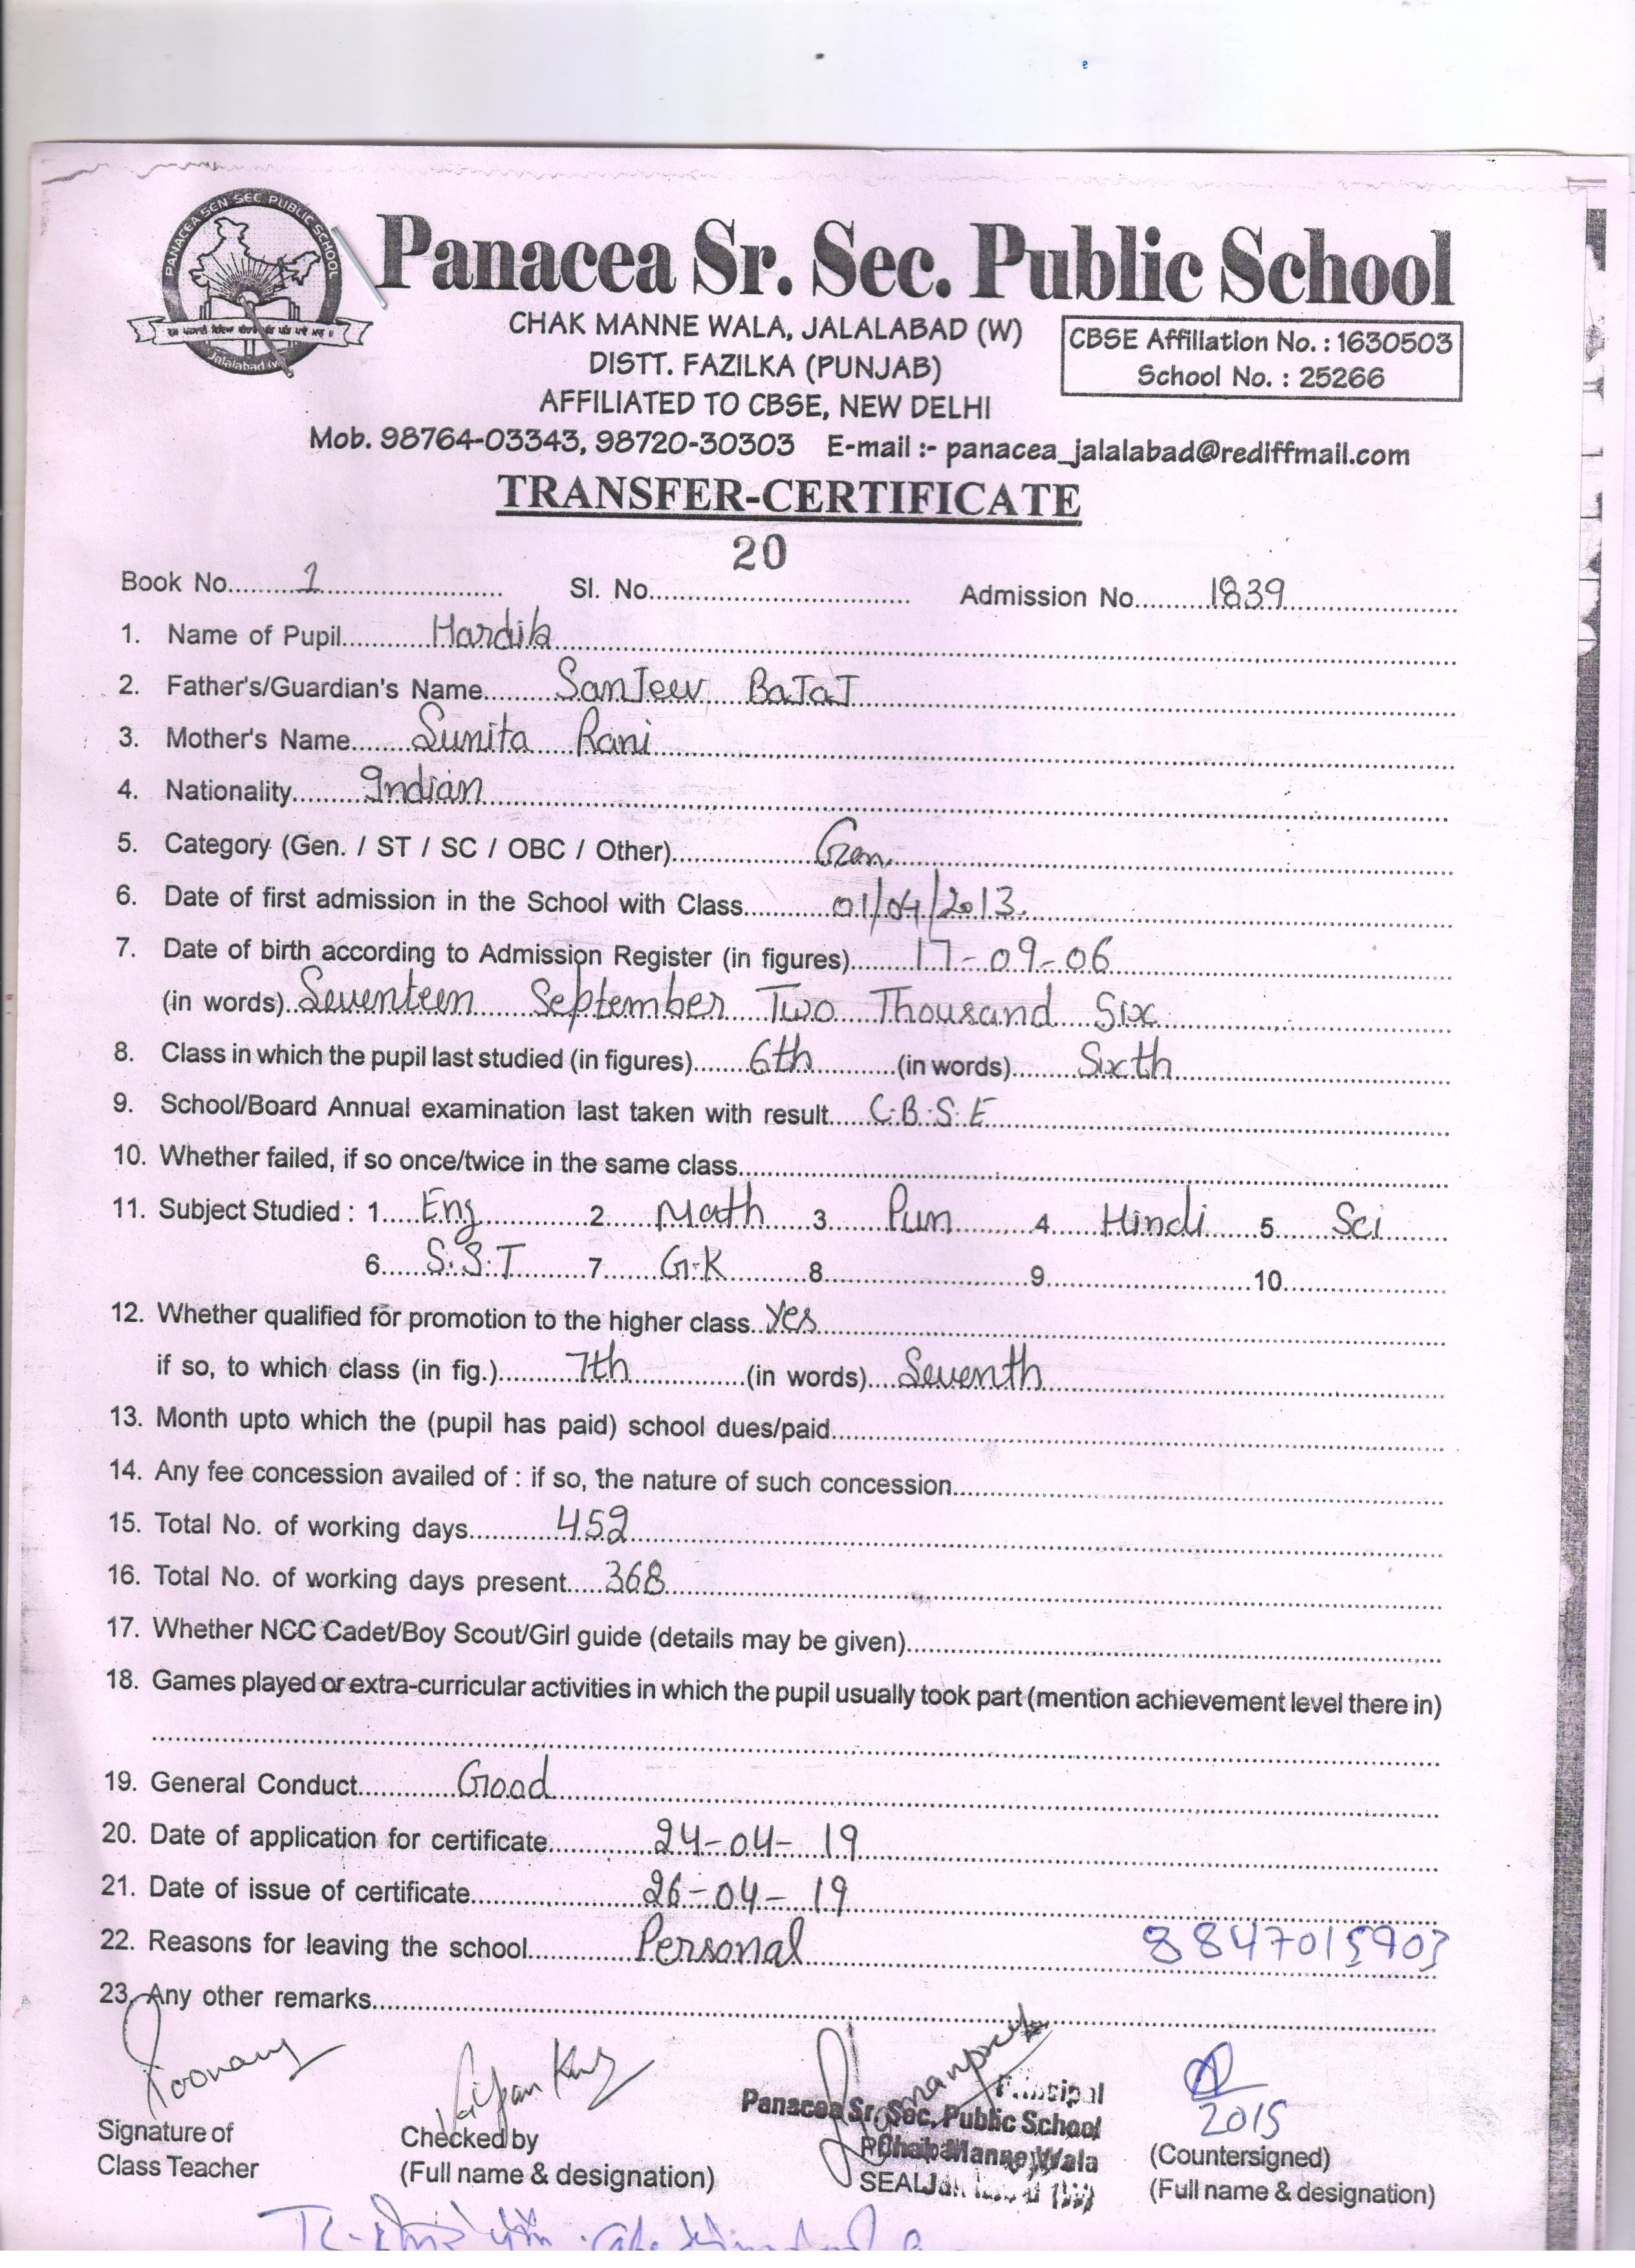 PANACEA SEN SEC PUBLIC SCHOOL
Jalalabad (W)
Panacea Sr. Sec. Public School
CHAK MANNE WALA, JALALABAD (W)
DISTT. FAZILKA (PUNJAB)
AFFILIATED TO CBSE, NEW DELHI
CBSE Affiliation No. : 1630503
School No. : 25266
Mob. 98764-03343, 98720-30303 E-mail :- panacea_jalalabad@rediffmail.com
TRANSFER-CERTIFICATE
20
Book No. 1 Sl. No. Admission No. 1839
1. Name of Pupil Hardik
2. Father's/Guardian's Name SanJeev BaJaJ
3. Mother's Name Sunita Rani
4. Nationality Indian
5. Category (Gen. / ST / SC / OBC / Other) Gen.
6. Date of first admission in the School with Class 01/04/2013.
7. Date of birth according to Admission Register (in figures) 17-09-06
(in words) Seventeen September Two Thousand Six
8. Class in which the pupil last studied (in figures) 6th (in words) Sixth
9. School/Board Annual examination last taken with result C.B.S.E
10. Whether failed, if so once/twice in the same class
11. Subject Studied : 1 Eng 2 Math 3 Pun 4 Hindi 5 Sci
6 S.S.T 7 G.K 8 9 10
12. Whether qualified for promotion to the higher class yes
if so, to which class (in fig.) 7th (in words) Seventh
13. Month upto which the (pupil has paid) school dues/paid
14. Any fee concession availed of : if so, the nature of such concession
15. Total No. of working days 452
16. Total No. of working days present 368
17. Whether NCC Cadet/Boy Scout/Girl guide (details may be given)
18. Games played or extra-curricular activities in which the pupil usually took part (mention achievement level there in)
19. General Conduct Good
20. Date of application for certificate 24-04-19
21. Date of issue of certificate 26-04-19
22. Reasons for leaving the school Personal 8847015903
23. Any other remarks
Principal
Panacea Sr. Sec. Public School
2015
Signature of
Class Teacher
Checked by
(Full name & designation)
SEAL
(Countersigned)
(Full name & designation)